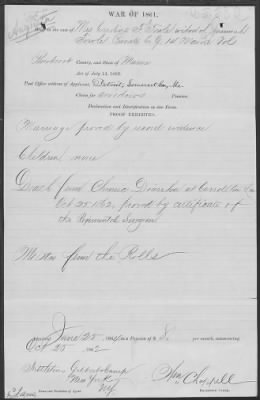 WAR OF 1861.
In the case of Mrs Caroline F. Fowler widow of Greenwood
Fowler Private Co G 1st Maine Vols
County, and State of Maine
Act of July 14, 1862.
Post Office address of Applicant, Detroit, Somerset Co, Me
Claim for Widow's Pension.
Declaration and Identification in due Form.
PROOF EXHIBITED.
Marriage proved by record evidence
Children none
Death from Chronic Diarrhea at Carrollton La
Oct 25, 1862, proved by certificate of
the Regimental Surgeon
Muster from the Rolls
June 25 1864 Pension of $ 8. per month, commencing
Oct 25 1862
New York
NY
Wm Chappell
Claims